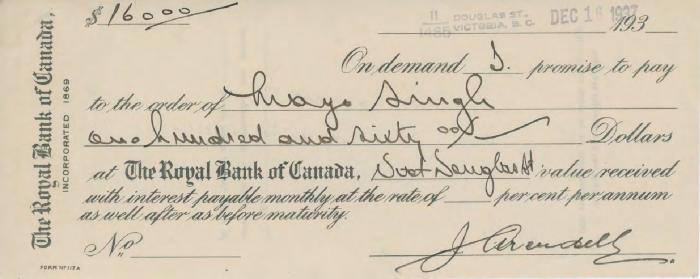 $160 00
11
1485 DOUGLAS ST.
VICTORIA, B. C. DEC 16 1937
193
On demand I promise to pay
to the order of Mayo Singh
one hundred and sixty 00/ Dollars
at The Royal Bank of Canada, Douglas St value received
with interest payable monthly at the rate of per cent per annum
as well after as before maturity.
No
The Royal Bank of Canada,
INCORPORATED 1869
FORM No 117A